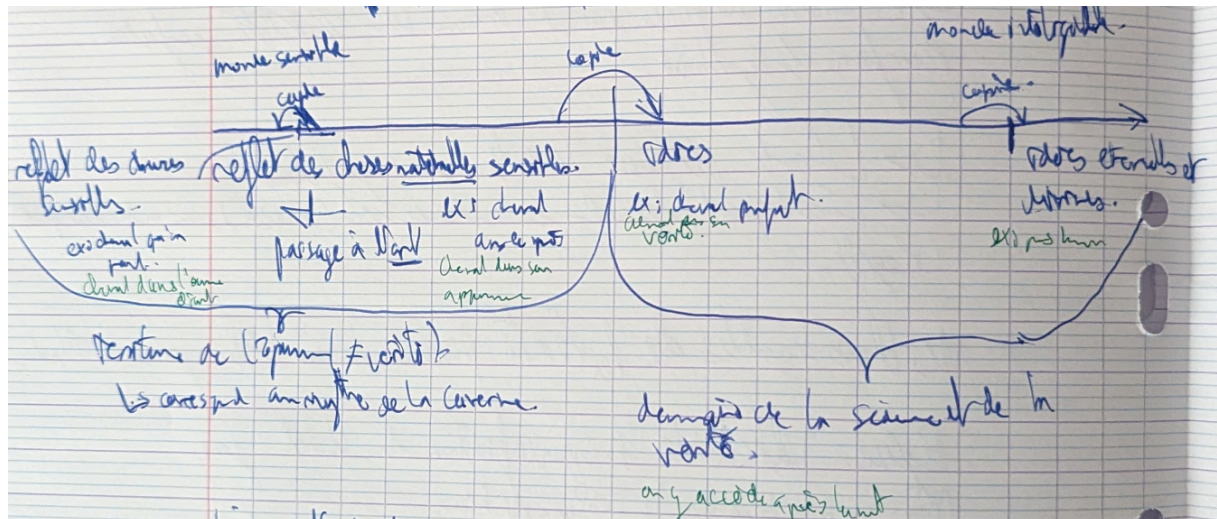 monde sensible
copie
copie
monde intelligible.
copie.
reflet des choses sensibles.
ex: cheval qu'on peint.
cheval dans l'œuvre d'art
reflet de choses naturelles sensibles.
passage à l'art
ex: cheval
dans le près
cheval dans son
apparence
idées
ex: cheval parfait.
cheval dans sa
vérité.
idées éternelles et
divines.
ex: pas humain
de l'opinion (≠ vérité)
↳ correspond au mythe de la Caverne.
domaine de la science et de la
vérité.
on y accède après la mort